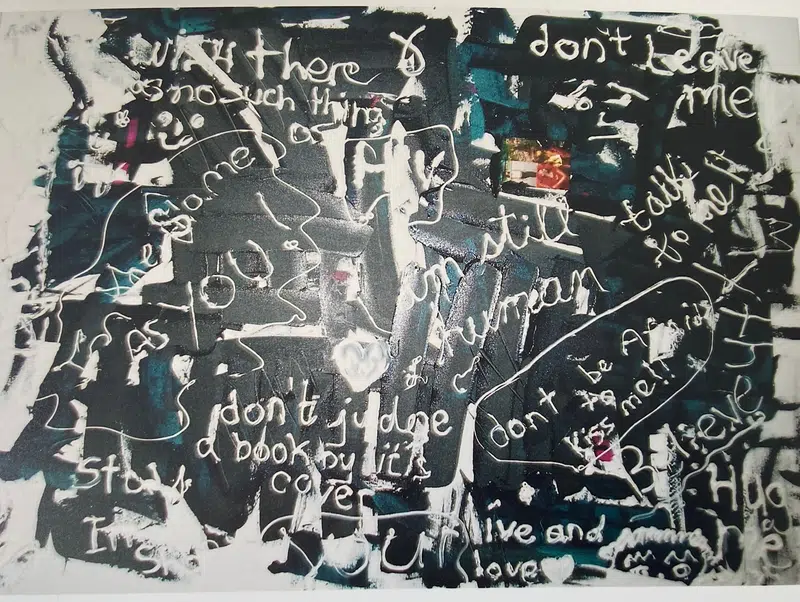 wish there
as no such thing
as
HIV
don't Leave
me
the same
as you!
talk
to me
I am still
human
dont be Afraid
to
kiss me!!
don't judge
a book by it's
cover
Believe
Hug
me
Stay
live and
love